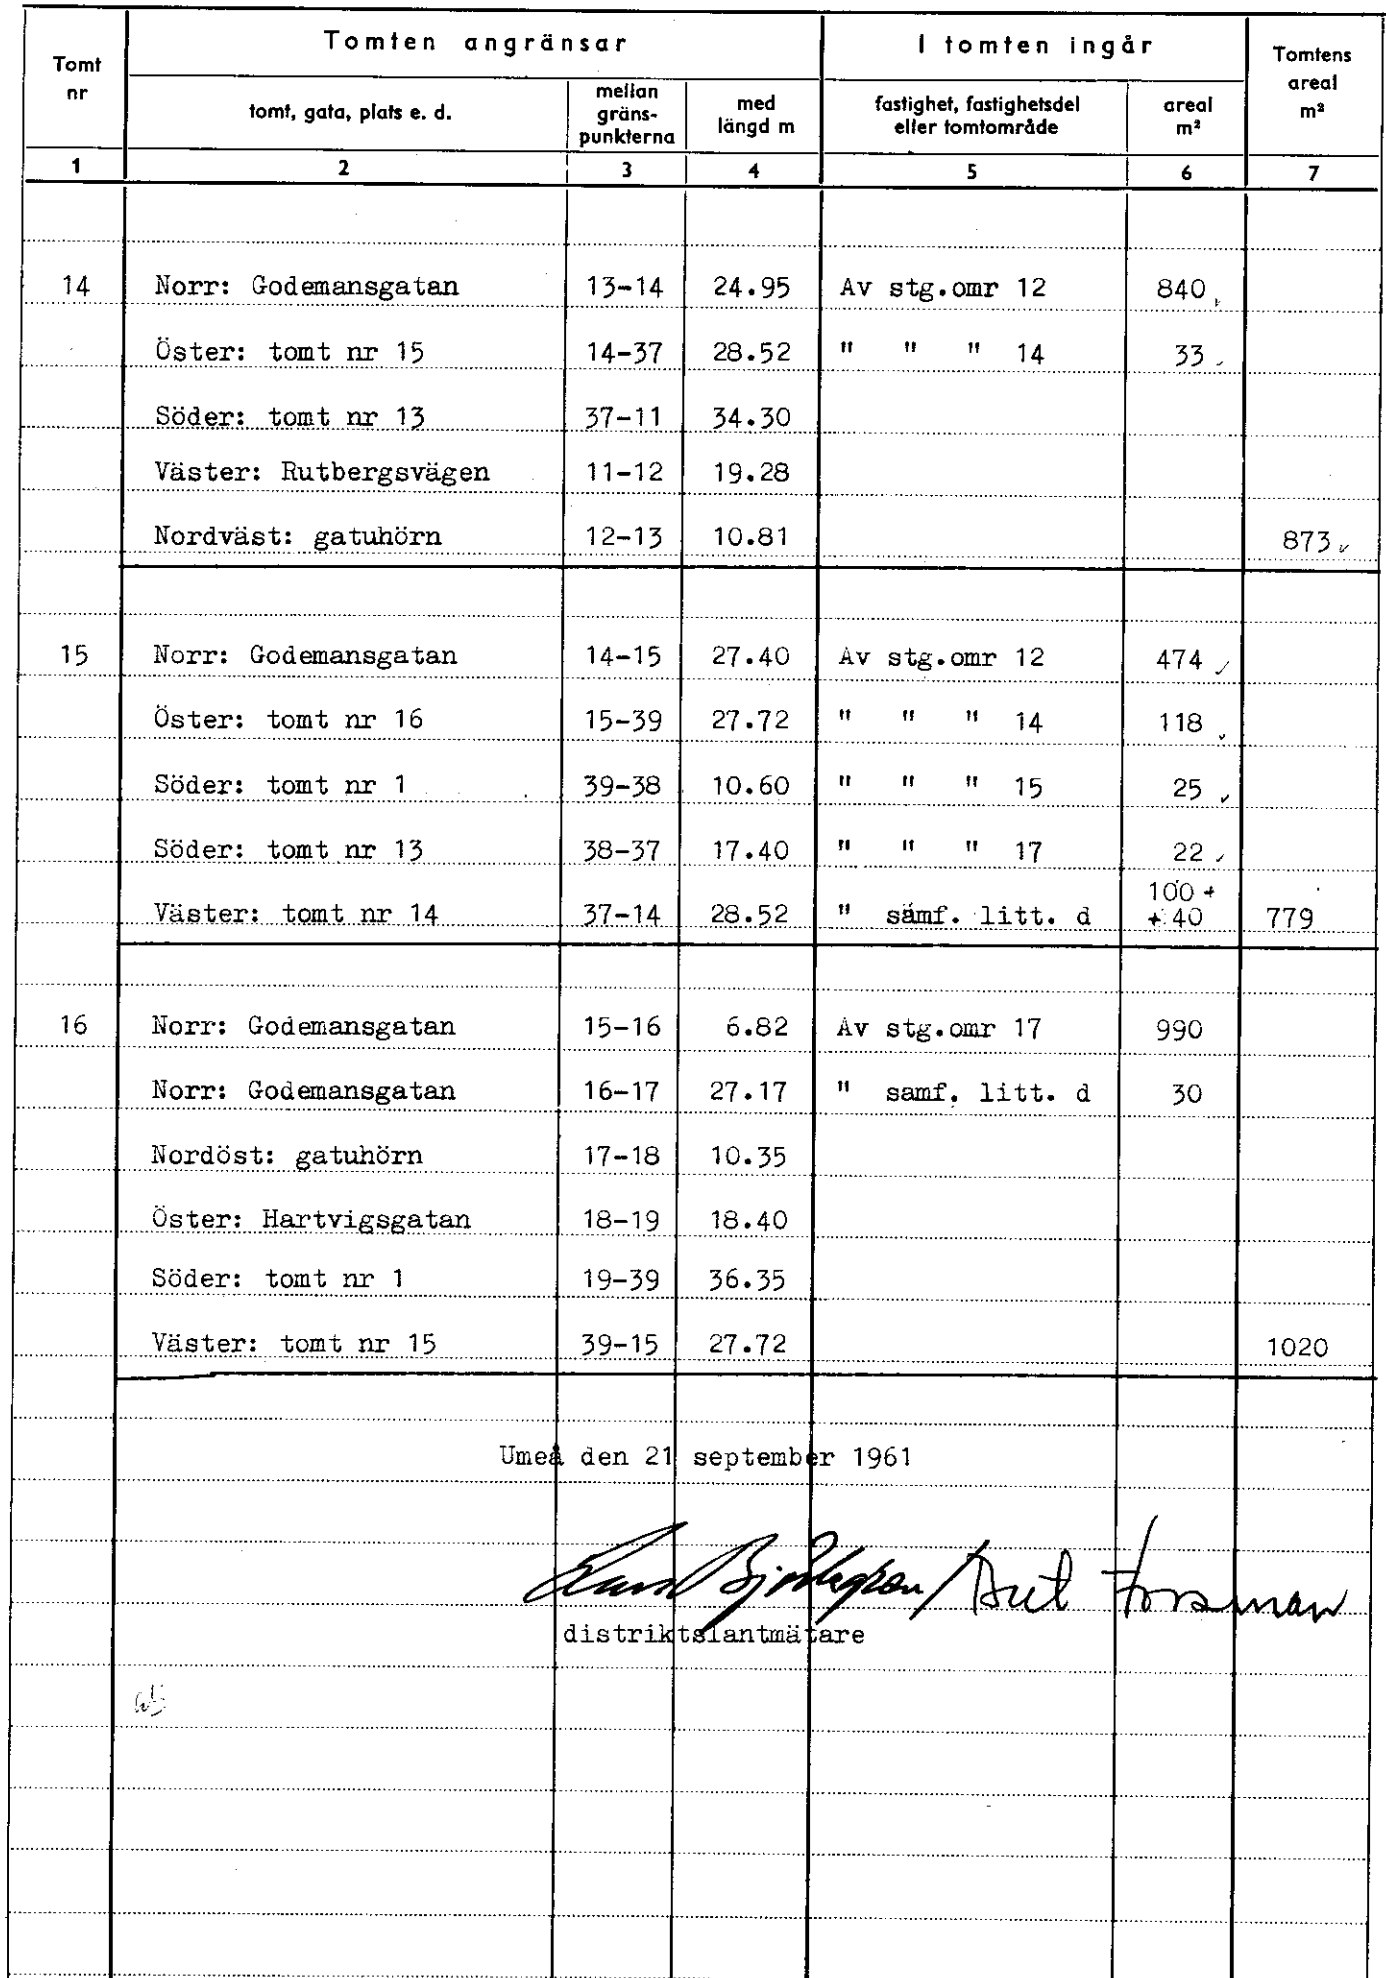 Tomt nr | Tomten angränsar | I tomten ingår | Tomtens areal m²
tomt, gata, plats e. d. | mellan gränspunkterna | med längd m | fastighet, fastighetsdel eller tomtområde | areal m²
1 | 2 | 3 | 4 | 5 | 6 | 7
14 | Norr: Godemansgatan | 13-14 | 24.95 | Av stg.omr 12 | 840
Öster: tomt nr 15 | 14-37 | 28.52 | " " " 14 | 33
Söder: tomt nr 13 | 37-11 | 34.30
Väster: Rutbergsvägen | 11-12 | 19.28
Nordväst: gatuhörn | 12-13 | 10.81 | 873
15 | Norr: Godemansgatan | 14-15 | 27.40 | Av stg.omr 12 | 474
Öster: tomt nr 16 | 15-39 | 27.72 | " " " 14 | 118
Söder: tomt nr 1 | 39-38 | 10.60 | " " " 15 | 25
Söder: tomt nr 13 | 38-37 | 17.40 | " " " 17 | 22
Väster: tomt nr 14 | 37-14 | 28.52 | " samf. litt. d | 100 + + 40 | 779
16 | Norr: Godemansgatan | 15-16 | 6.82 | Av stg.omr 17 | 990
Norr: Godemansgatan | 16-17 | 27.17 | " samf. litt. d | 30
Nordöst: gatuhörn | 17-18 | 10.35
Öster: Hartvigsgatan | 18-19 | 18.40
Söder: tomt nr 1 | 19-39 | 36.35
Väster: tomt nr 15 | 39-15 | 27.72 | 1020
Umeå den 21 september 1961
Forsman
distriktslantmätare